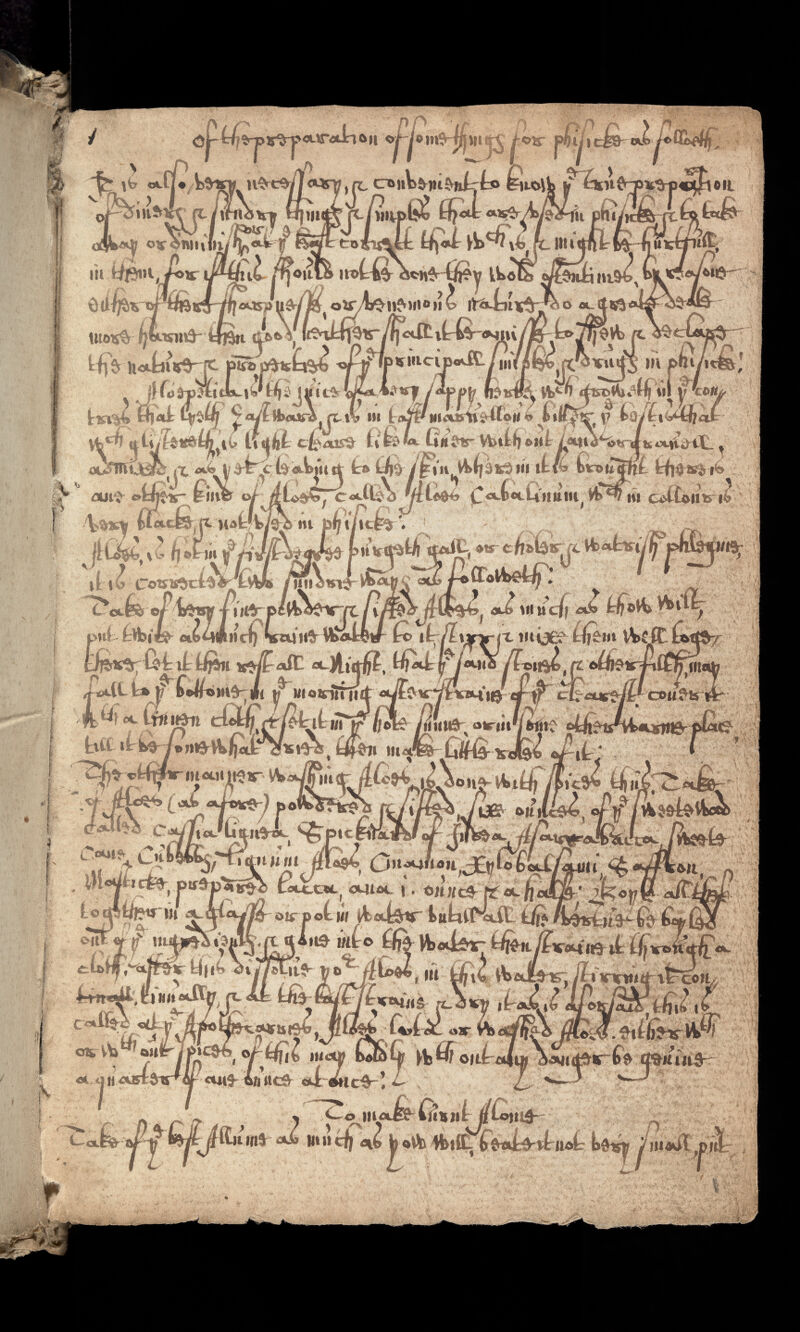 1 Of the preparation of some things for phisicke as followeth.
It is also very necessary, & convenient to know yͤ true preparation
of divers & sundry things & simples that are used in phisicke & to take
away or diminish, or at yͤ least correct that wᶜʰ is, & might be hurtfull
in them, for if this should not be done they wold oftentimes, by reason
either of there sharpnesse, or venemous nature do a greate deale
more harme then good, neither shall it be amisse to shew & declare
the nature & properties of yͤ principall simples, & drugs in phisicke:
Aloepatica is the juice of a very sappy herbe, wᶜʰ groweth in yͤ con,
tries that lyeth Eastward, & is in tast marvellous bitter, yͤ best is that
wᶜʰ glistereth, is light cleare like a liver without sand or gravell,
admixed, & as yet cleaving to the skin, wherein it is brought there is
ane other kind of Aloes, called Aloes Cabalinum, wᶜʰ in collour is
very blacke, & not used in phisicke:
Aloes, is hot in yͤ first degree purgeth gall, or choler, & watrish phlegme,
it is corrected two sundrie ways as followeth:
Take of very fine powder & sifted Aloes, as much as thow wilt,
put twice as much raine water to it stirr & mixe them well toge,
there let it then rest all a Night, that yͤ sand stones, & other filth may
fall to yͤ bottome in yͤ morning after straine of yͤ clearest cover it
wᵗʰ a linnen cloth, & set it in yͤ hote sunne, or in some other warme place,
till it be somewhat dried, then make little roles of it;
The other manner washing Aloes, is done with spices thus, Take
of Aloes (as afore) powdered & sifted, sixe ounces, of yͤ sweete wood
called Cassia lignea, Spicknard of India, Asarabacca, sweete
Cane, Cubebs, Lignum Aloes, Cinamon, Xylobalsami, Saffron,
Masticke, prepared Lacca, ana 1. ounce & a halfe: Boyle all thes
together in a glasse or pot in water untill all the vertue be boyled
out of yͤ ingredients, & gone into the water, then straine it through a
cloth, after this dissolve yoʳ Aloes, in this water, stirring it con,
tinually, & at the last straine & dry it as is aforsaid, this is
called at yͤ Apothecaries, Aloes lota or washed Aloes. either wᵗʰ
or wᵗʰout spices, of this may boldly wᵗʰout any danger be gevine
a quarter of ane ounce at once:
To make burnt Alome
Take of yͤ best Allume as much as yow will, beate it not very small, put